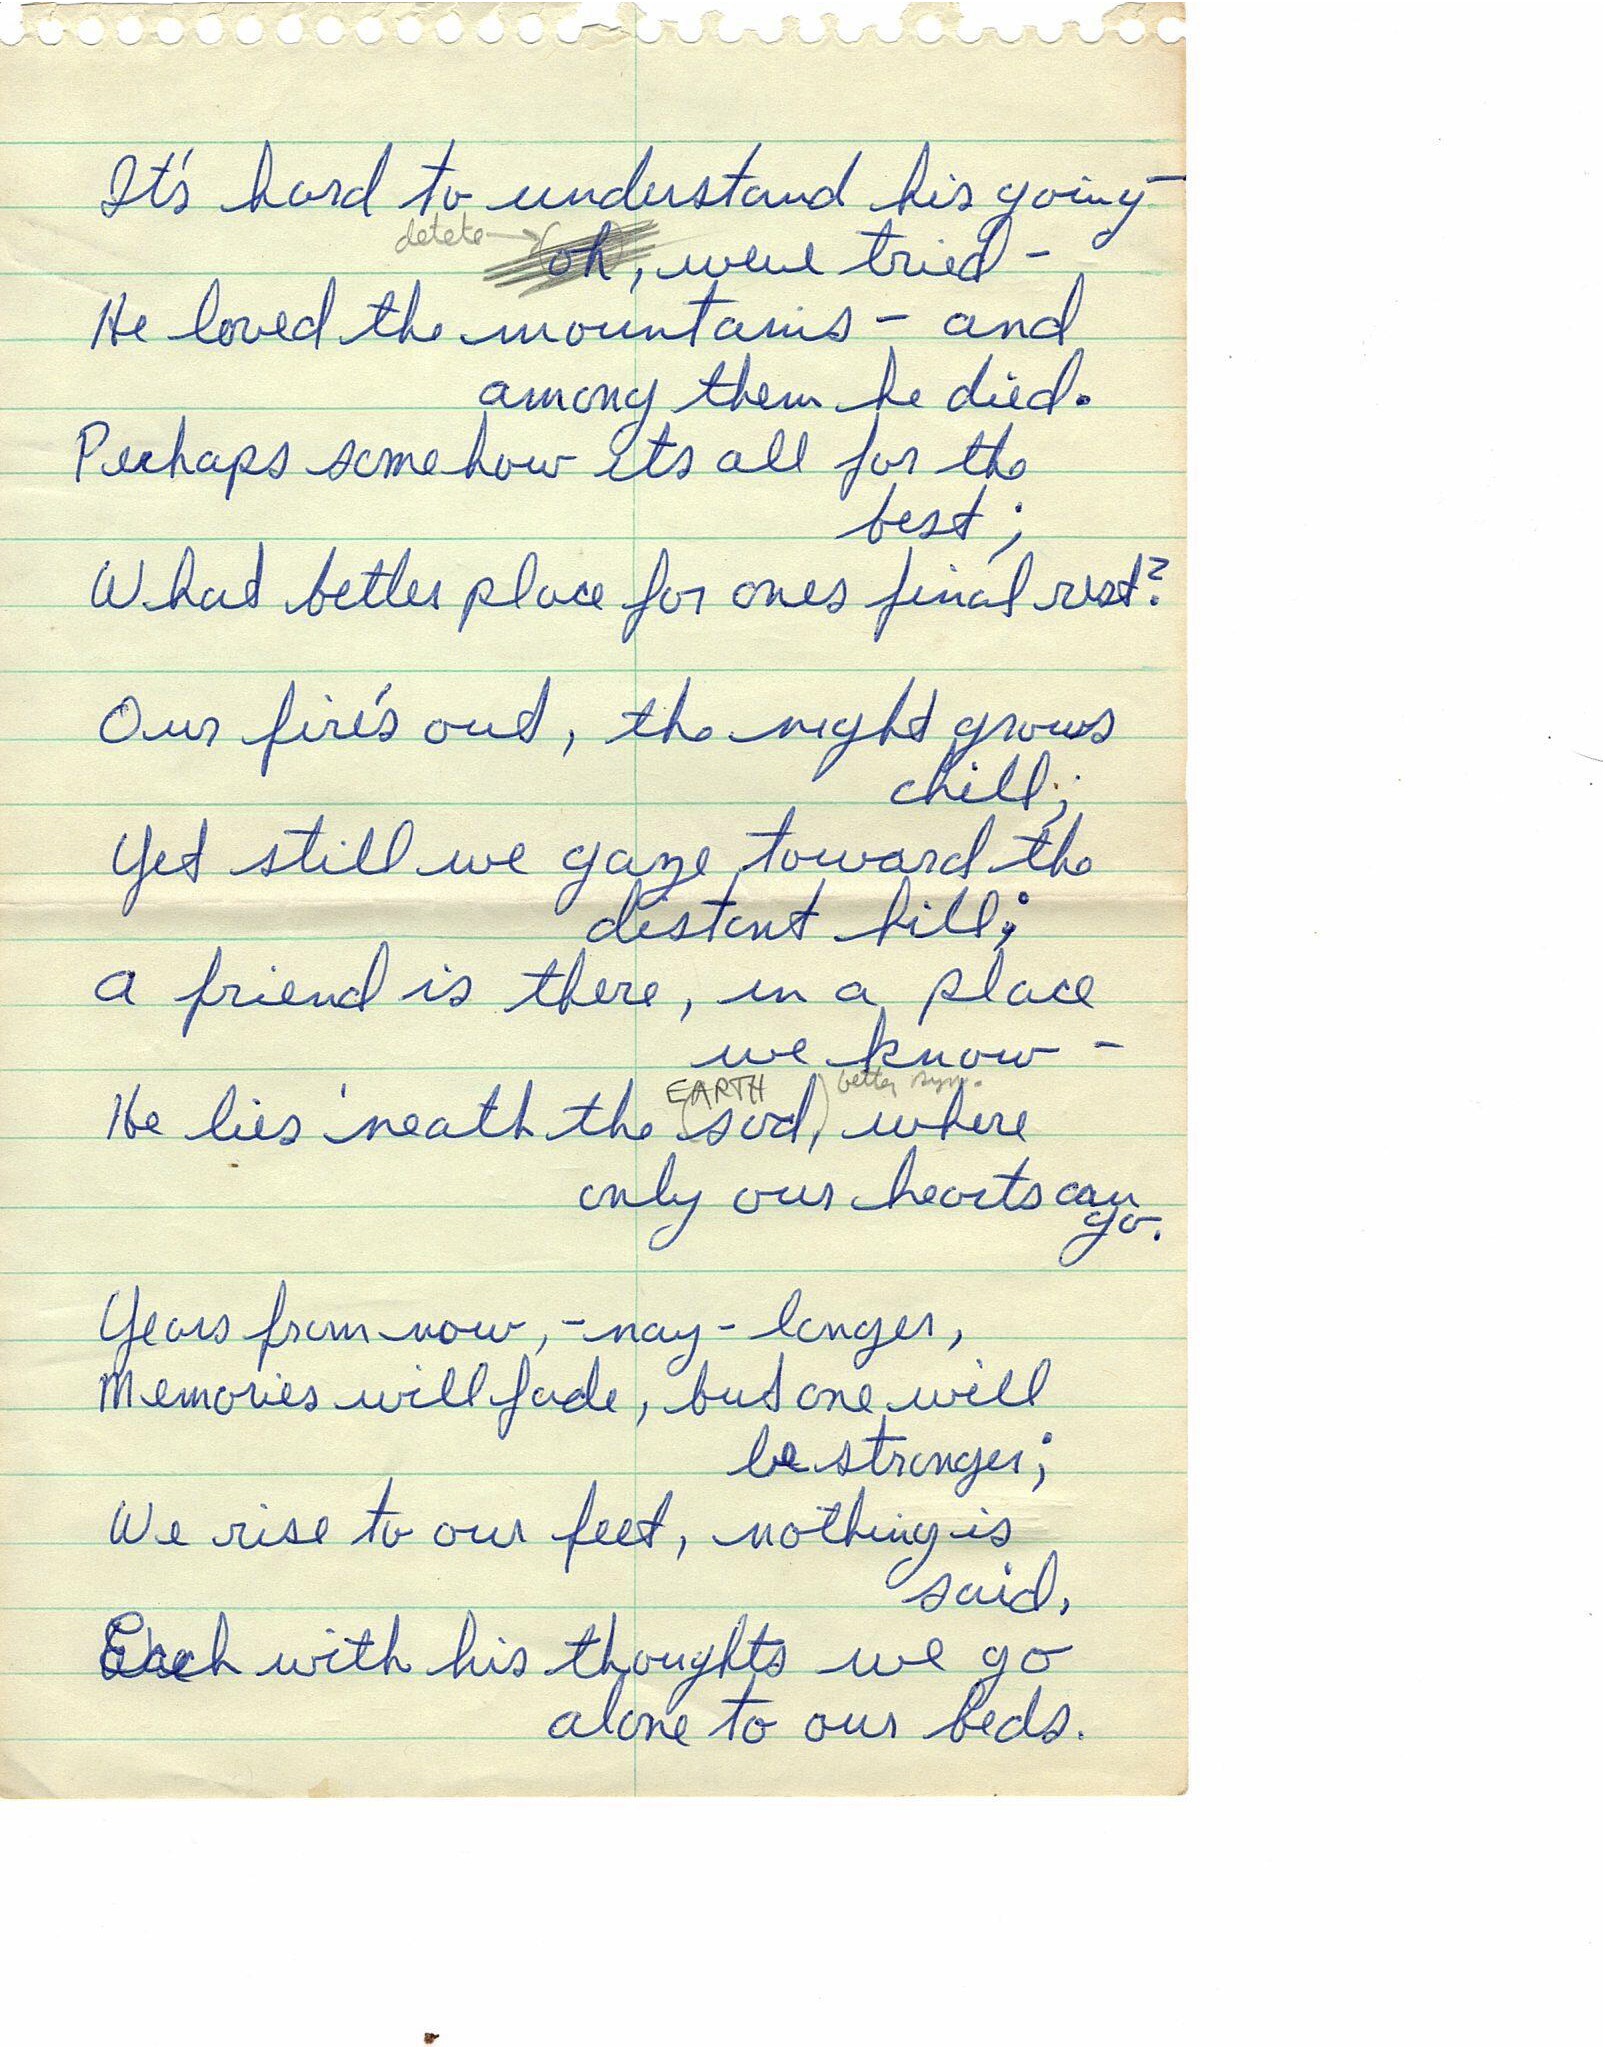 It's hard to understand his going –
delete → (oh), weve tried –
He loved the mountains – and
among them he died.
Perhaps somehow its all for the
best;
What better place for ones final rest?
Our fire's out, the night grows
chill;
Yet still we gaze toward the
distant hill;
A friend is there, in a place
we know –
EARTH better sym.
He lies 'neath the (sod,) where
only our hearts can
go.
Years from now, – nay – longer,
Memories will fade, but one will
be stronger;
We rise to our feet, nothing is
said,
Each with his thoughts we go
alone to our beds.